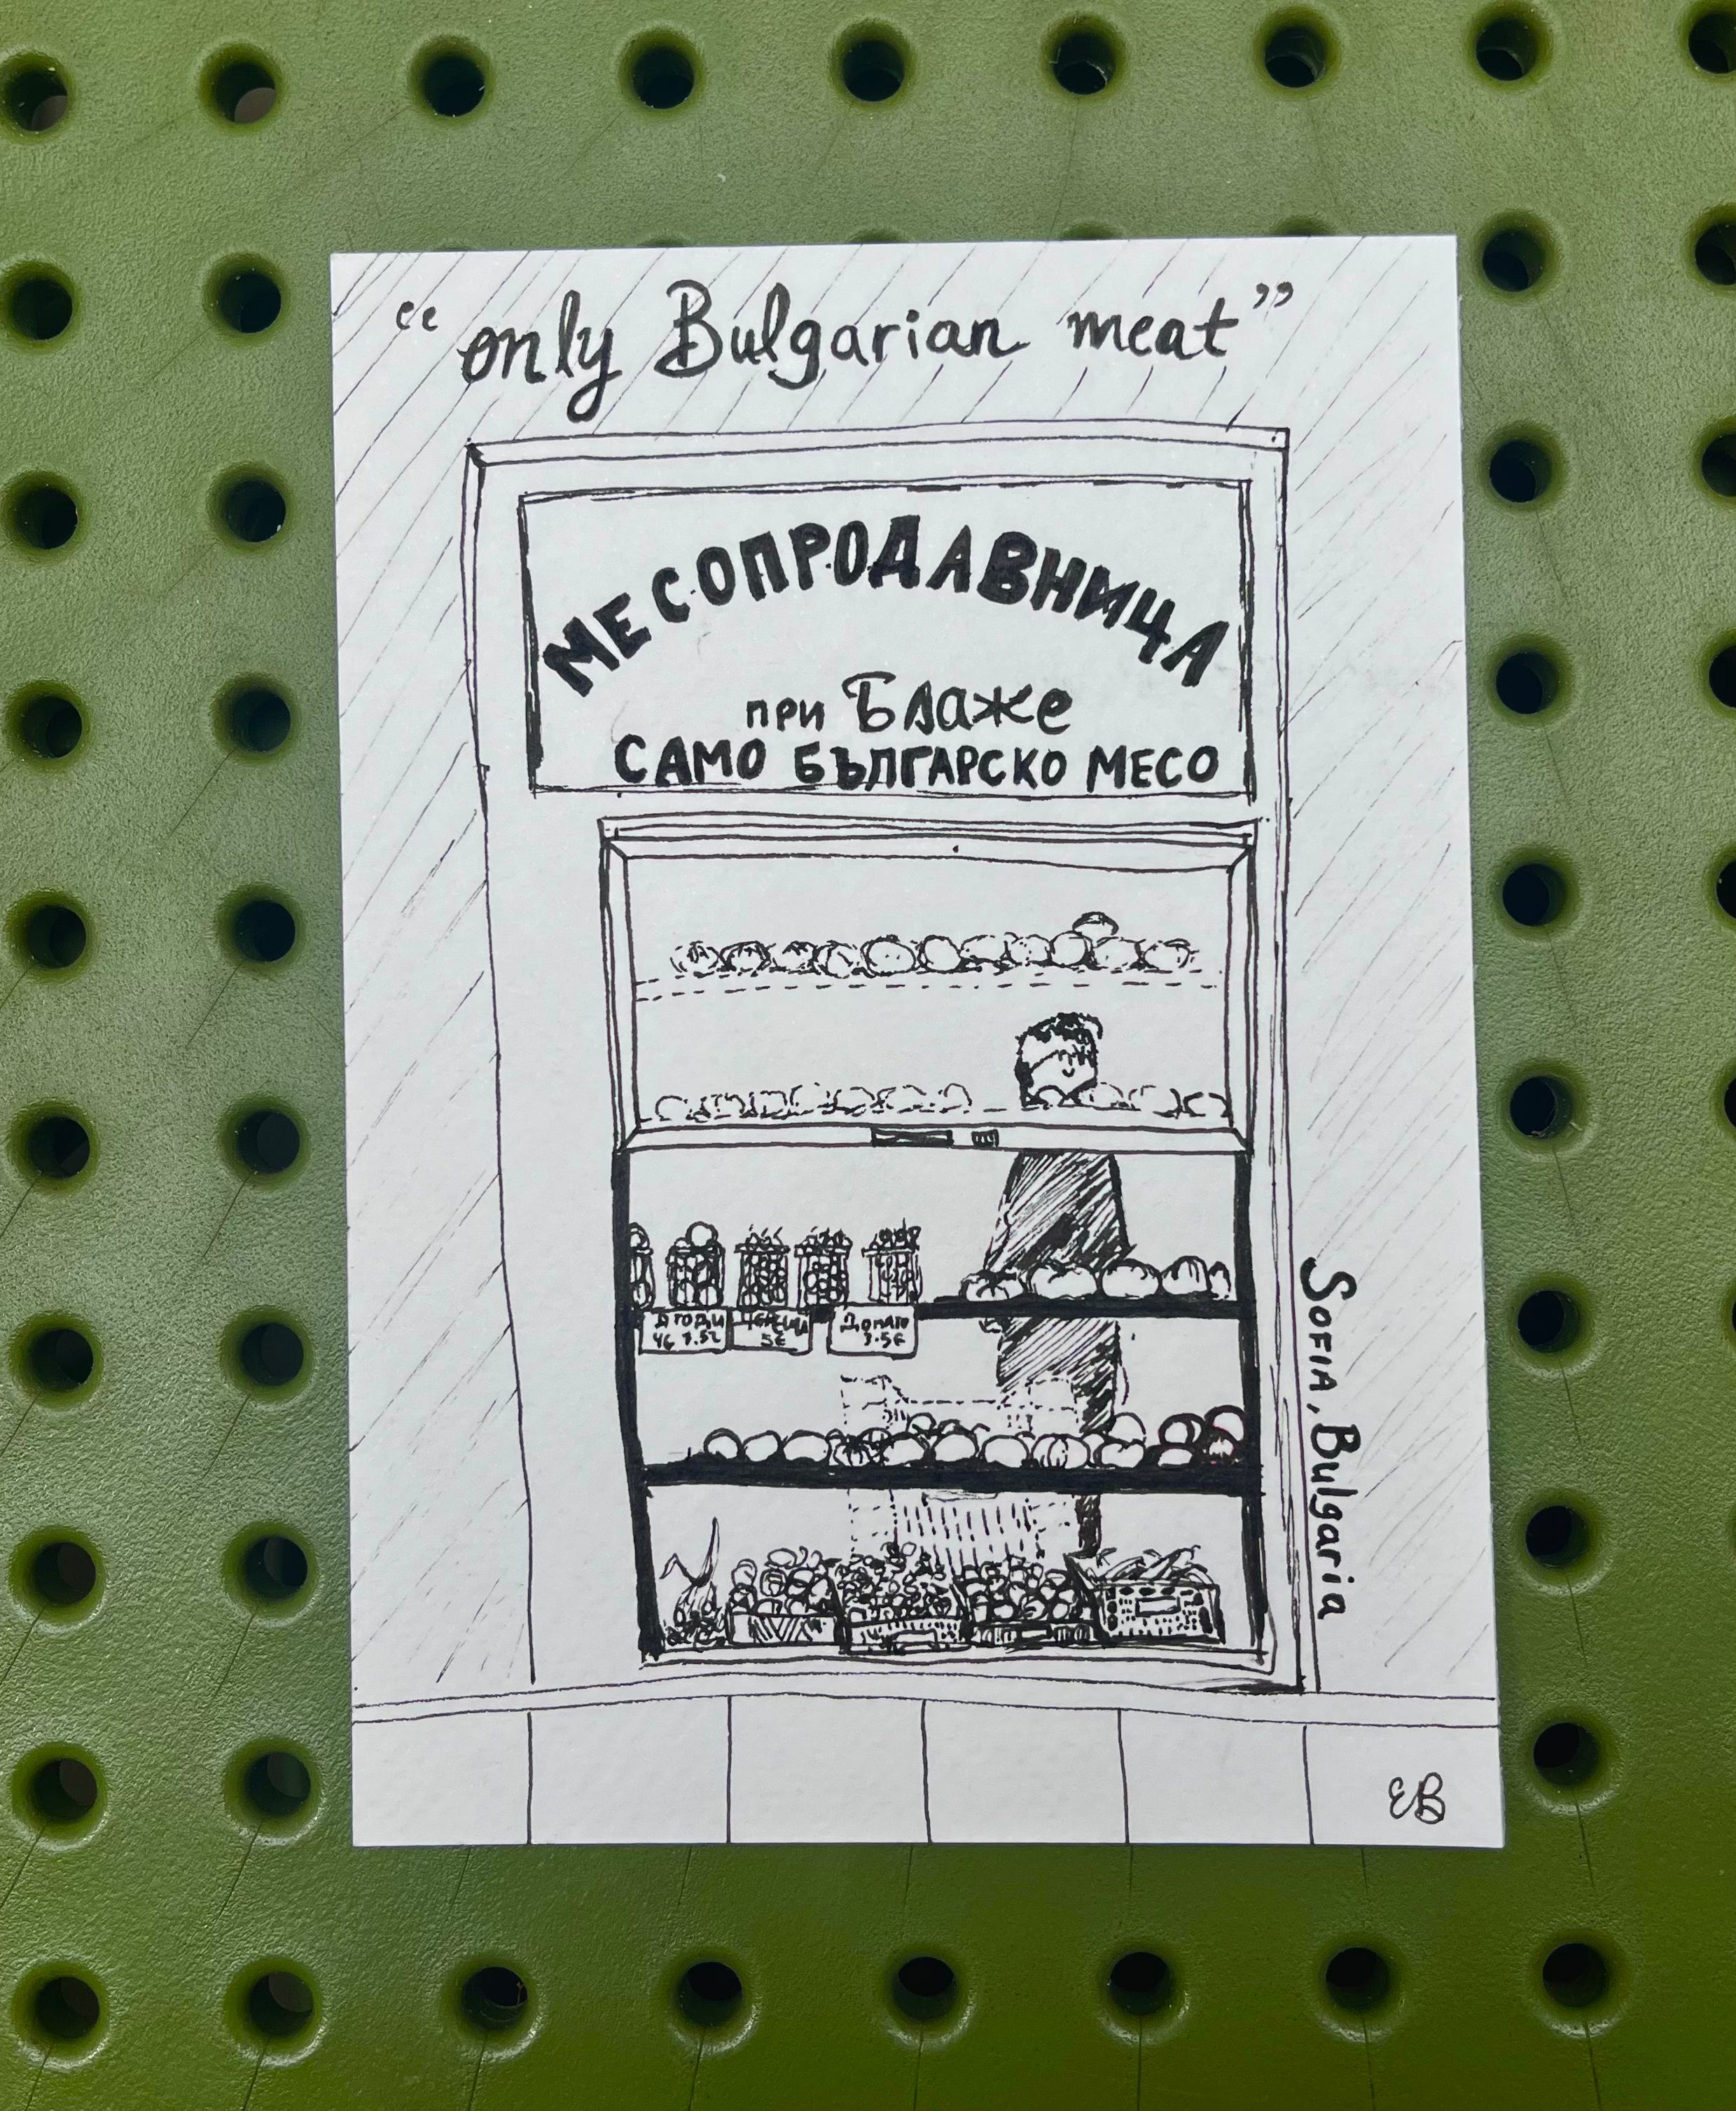 “only Bulgarian meat”
МЕСОПРОДАВНИЦА
при Блаже
САМО БЪЛГАРСКО МЕСО
ЯГОДИ
5€
Домати
3.5€
SOFIA, Bulgaria
EB